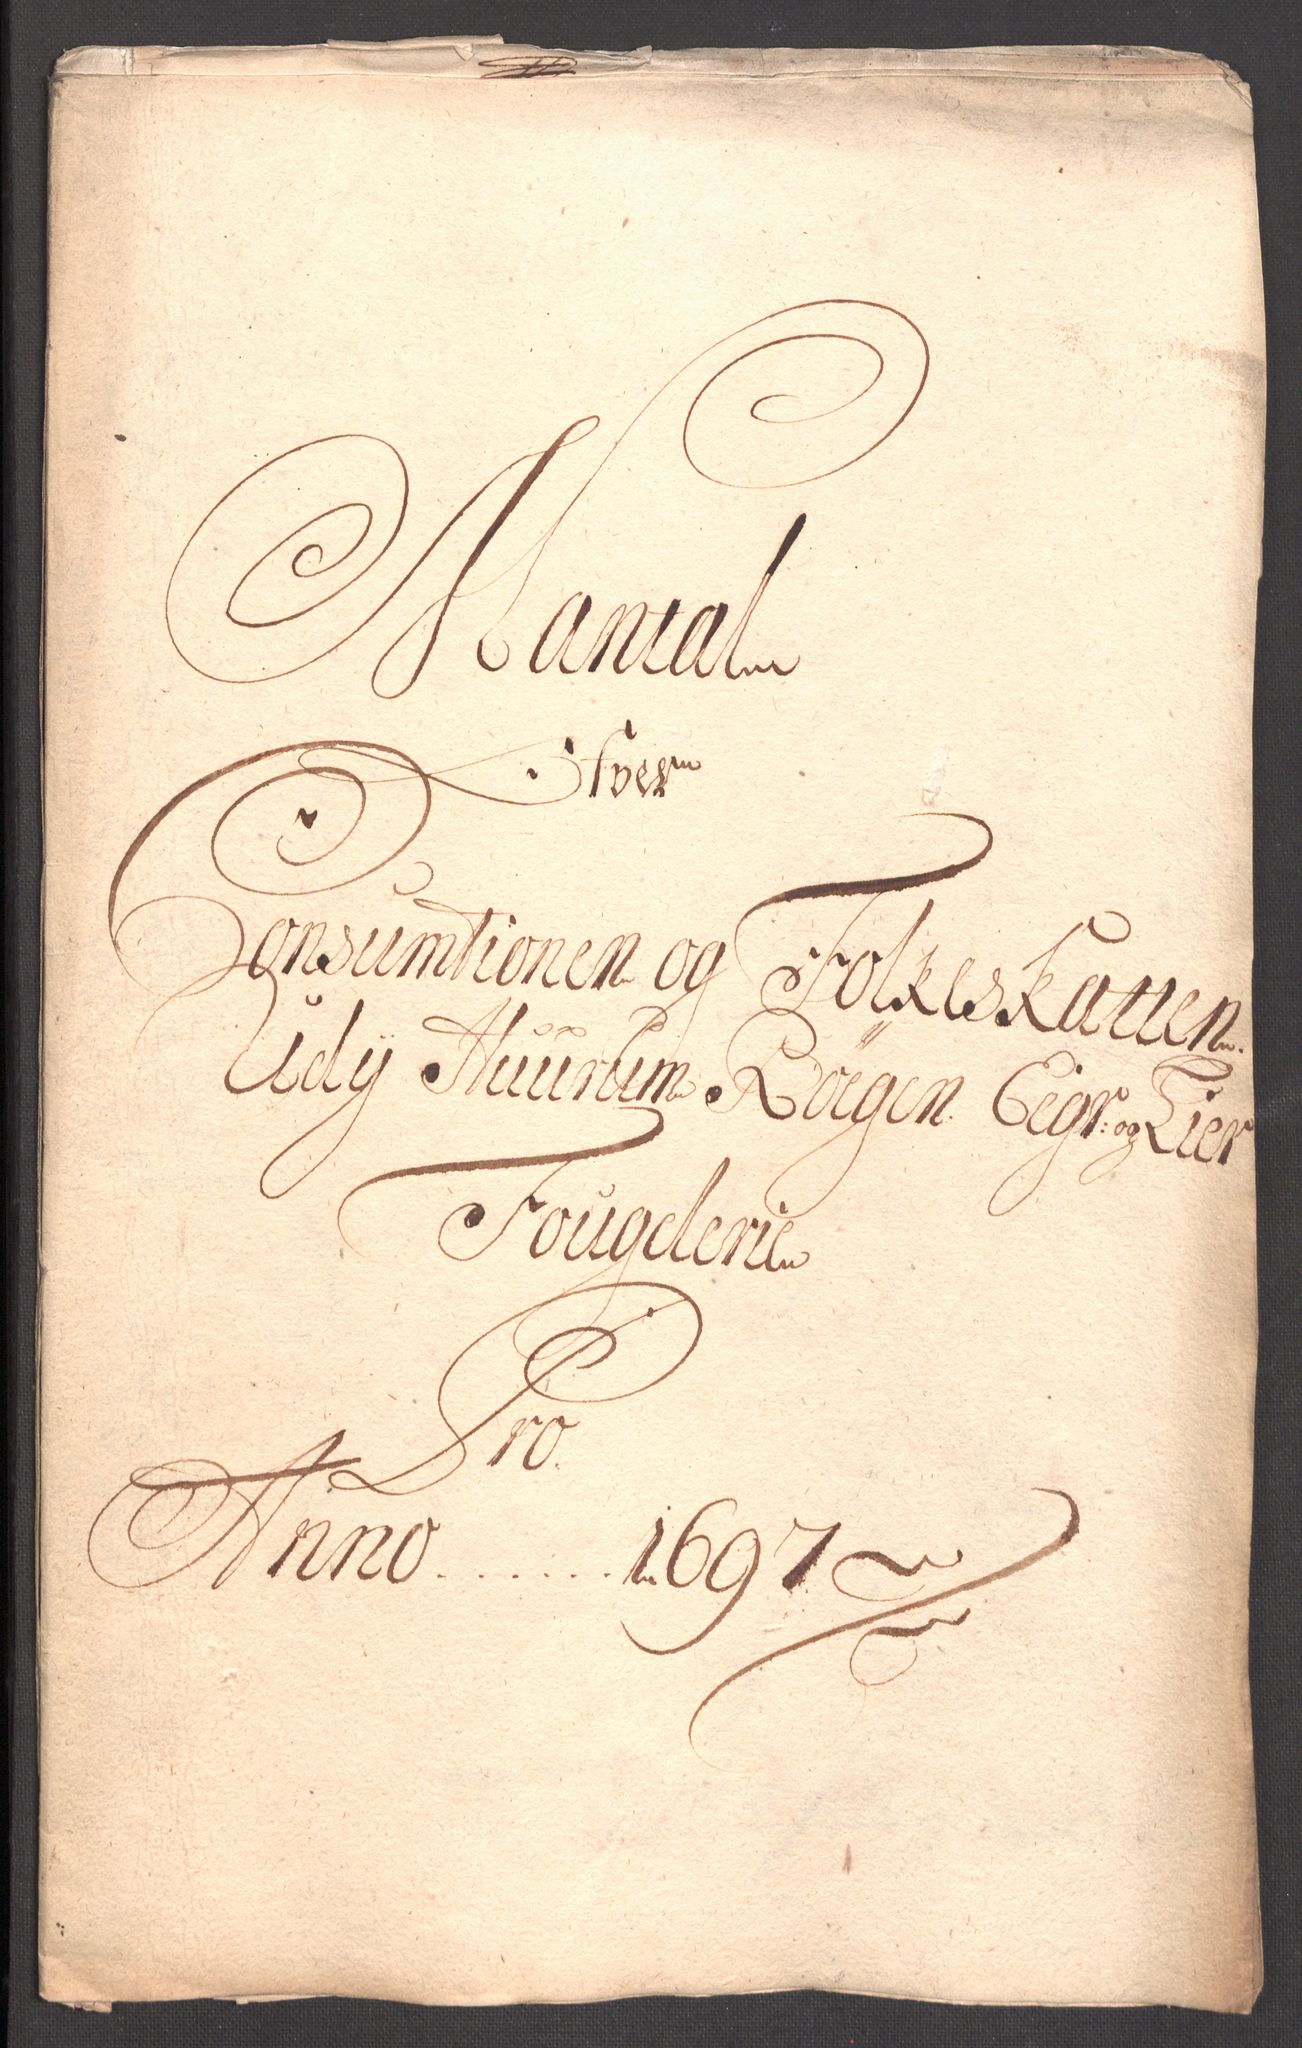 Mantal
Ofver
Consumtionen og Folkeskatten
Udj Huurum Röegen Eigr: og Lier
Fougderie
Pro
Anno ...... 1697